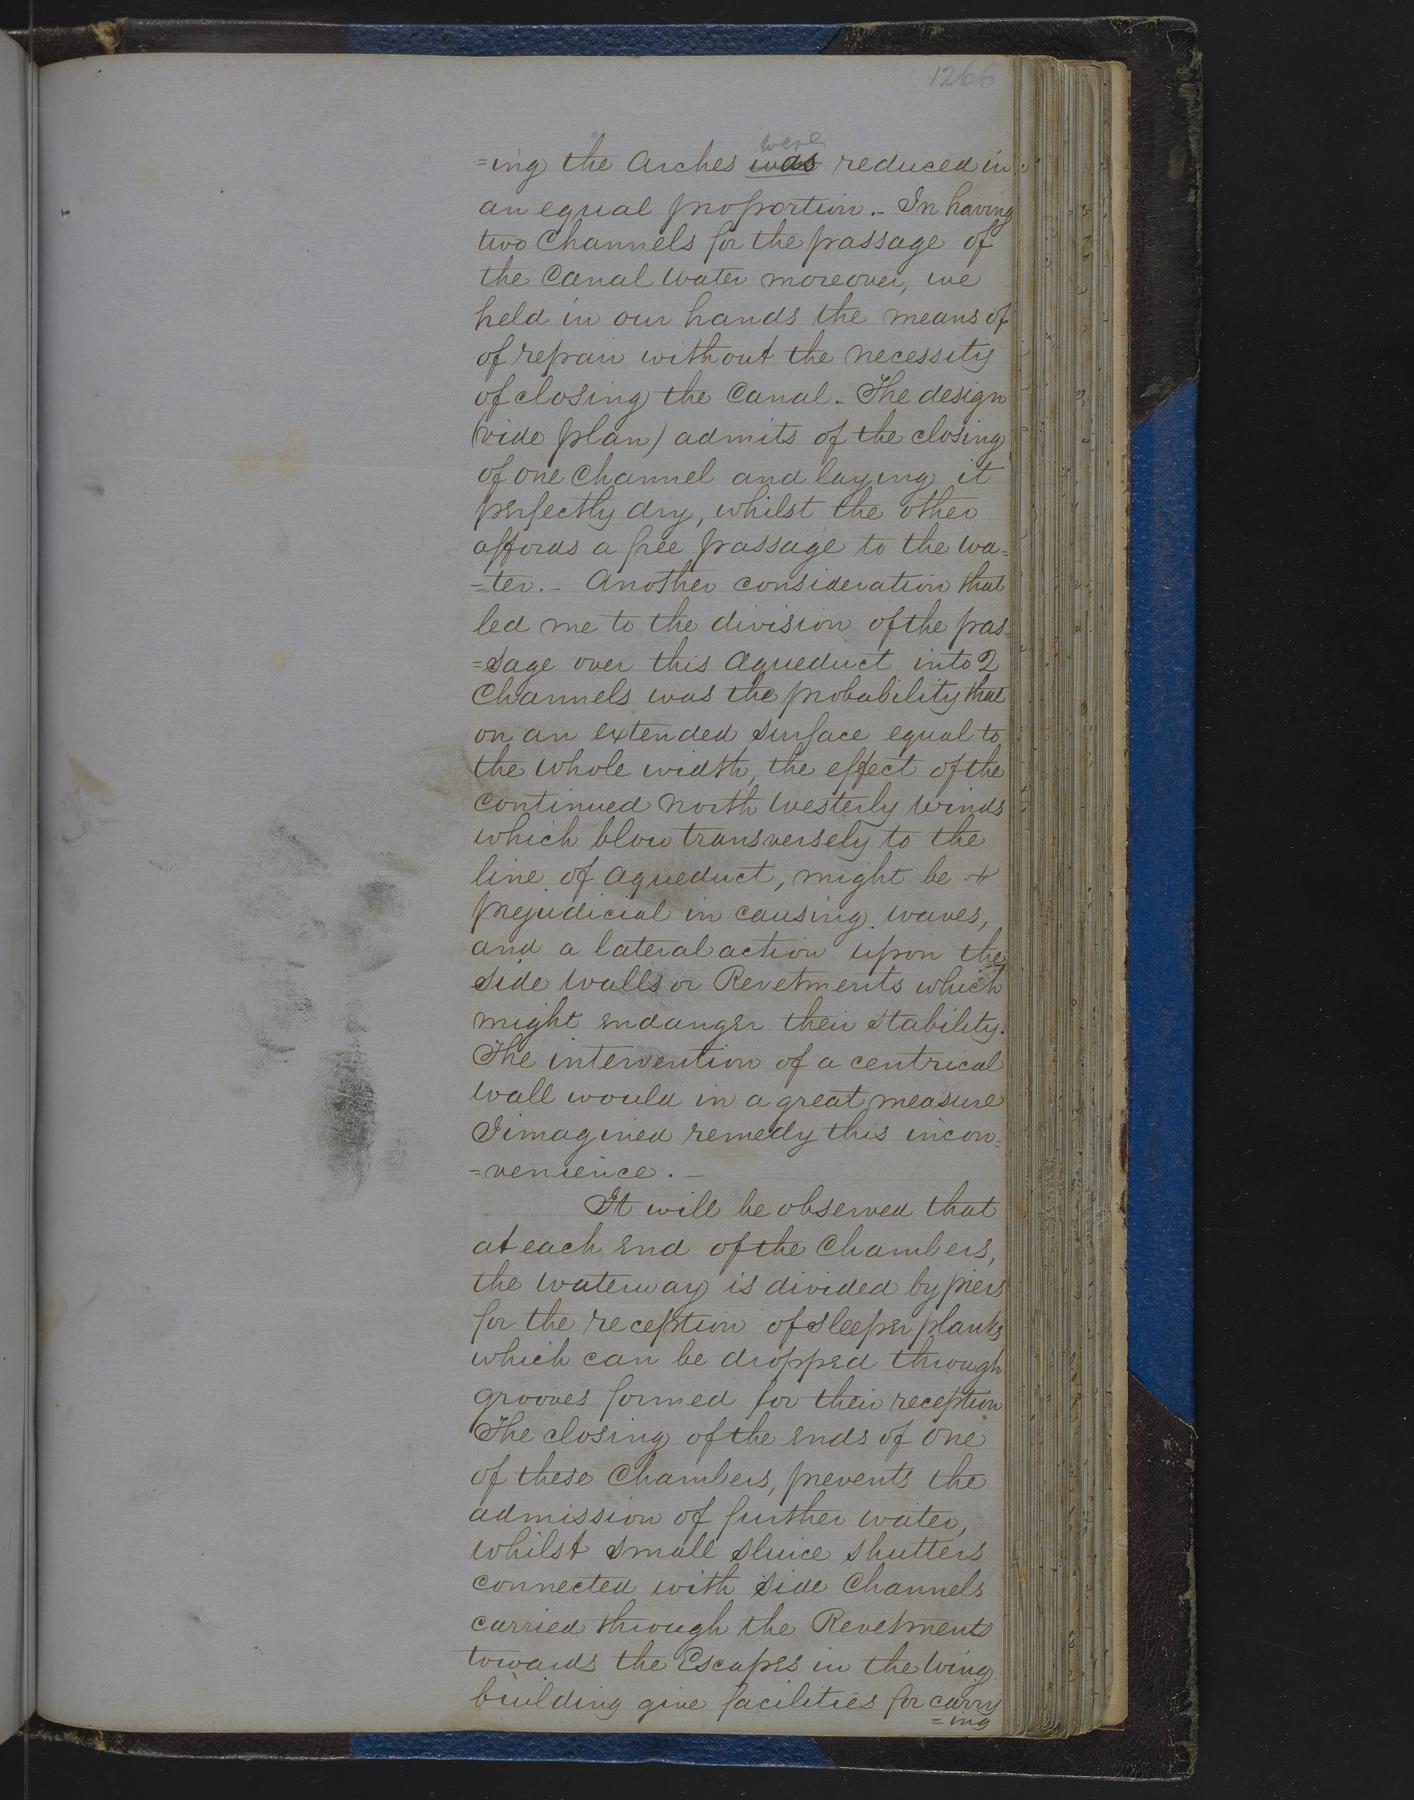 1266
were
=ing the Arches was reduced in
an equal proportion. - In having
two Channels for the passage of
the Canal water moreover, we
held in our hands the means of
of repair without the necessity
of closing the Canal. - The design
(vide plan) admits of the closing
of one Channel and laying it
perfectly dry, whilst the other
affords a free passage to the wa=
=ter. - Another consideration that
led me to the division of the pas=
=sage over this Aqueduct into 2
Channels was the probability that
on an extended surface equal to
the whole width, the effect of the
continued North Westerly Winds
which blow transversely to the
line of Aqueduct, might be
prejudicial in causing waves,
and a lateral action upon the
side walls or Revetments which
might endanger their stability.
The intervention of a centrical
wall would in a great measure
I imagined remedy this incon=
=venience. -
It will be observed that
at each end of the Chambers,
the waterway is divided by piers
for the reception of sleeper planks
which can be dropped through
grooves formed for their reception
The closing of the ends of one
of these Chambers, prevents the
admission of further water,
whilst small sluice shutters
connected with side Channels
carried through the Revetments
towards the Escapes in the Wing
building give facilities for carry
=ing